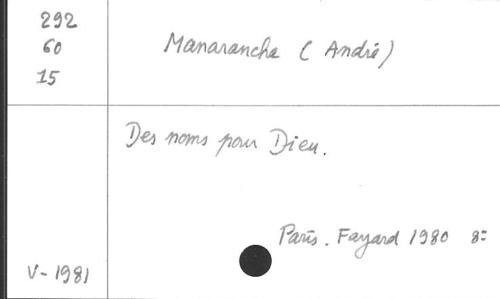 292
60
15
Manaranche (André)
Des noms pour Dieu.
Paris. Fayard 1980 8=
V-1981